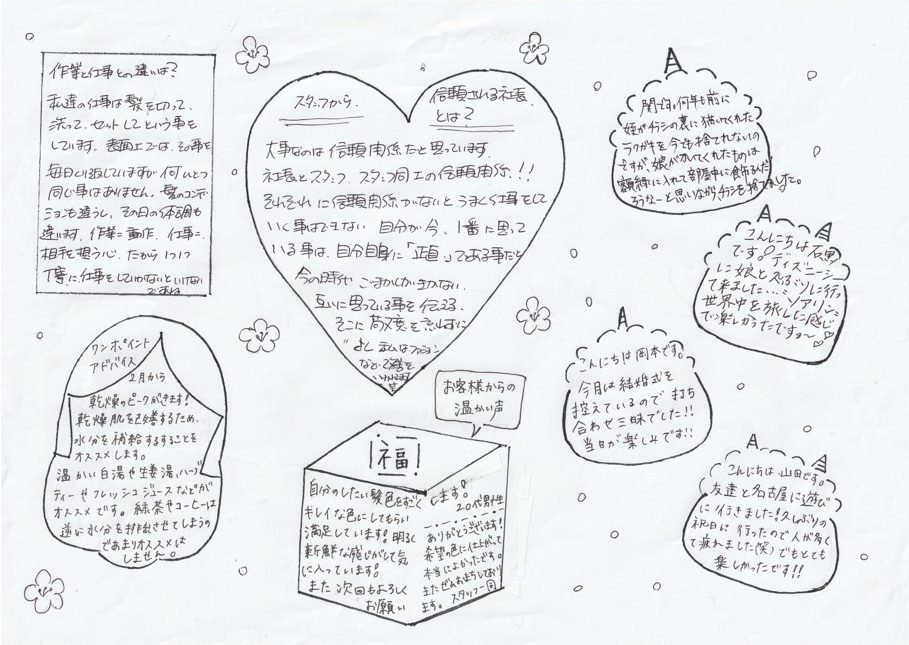 作業と仕事との違いは?
私達の仕事は髪を切って、
洗って、セットしてという事を
しています。表面上では、その事を
毎日くり返していますが何ひとつ
同じ事はありません。髪のコンデ
ションも違うし、その日の体調も
違います。作業=動作、仕事=
相手を想う心、だから1つ1つ
丁寧に仕事をしていかないといけない
ですね
スタッフから、
信頼される社長
とは?
大事なのは信頼関係だと思っています。
社長とスタッフ、スタッフ同士の信頼関係!!
それぞれに信頼関係がないとうまく仕事をして
いく事はできない 自分が今、1番に思って
いる事は、自分自身に「正直」である事だと
今の時代 こまかくかまわない、
互いに思っている事を伝える、
そこに
"よし
など
関です。何年も前に
姪がチラシの裏に描いてくれた
ラクガキを今でも捨てれないの
ですが、娘がかいてくれたものは
額縁に入れて部屋中に飾るんだ
ろうなーと思いながらチラシを捨てました。
こんにちは石黒
です!ディズニーシー
に娘と
て来ました...ソアリンは
世界中を旅した感じ
でっ楽しかったですョ〜♡
こんにちは岡本です。
今月は結婚式を
控えているので打ち
合わせ三昧でした!!
当日が楽しみです!!
こんにちは山田です。
友達と名古屋に遊び
に行きました!久しぶりの
祝日に行ったので人が多く
て疲れました(笑)でもとても
楽しかったです!!
ワンポイント
アドバイス
2月から
乾燥のピークがきます!
乾燥肌を改善するため、
水分を補給するすることを
オススメします。
温かい白湯や生姜湯、ハーブ
ティーやフレッシュジュースなどが
オススメです。緑茶やコーヒーは
逆に水分を排出させてしまうの
であまりオススメは
しません。
お客様からの
温かい声
福
自分のしたい髪色をすごく
キレイな色にしてもらい
満足しています!明るく
新鮮な感じがして気
に入っています!
また次回もよろしく
お願い
します!
20代男性
ありがとうございます!
希望の色に仕上がって
本当によかったです。
またぜひお待ちしており
ます。スタッフ一同